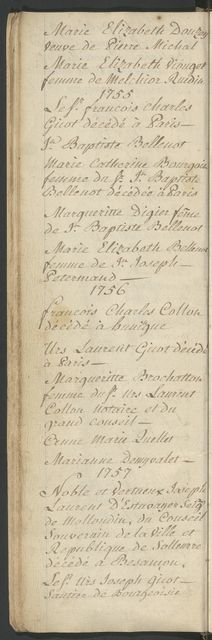 Marie Elizabeth
veuve de Pierre Michal
Marie Elizabeth
femme de Melchior
1755
Le Sr. françois Charles
Gicot décédé à Paris —
Jn. Baptiste Bellenot
Marie Catherine Bourgoin
femme du Sr. Jn. Baptiste
Bellenot décédée à Paris
Margueritte Digier fême
de Jn. Baptiste Bellenot
Marie Elizabeth
femme de Jn. Joseph
Petermand —
1756
françois Charles Collon
décédé à
Urs Laurent Gicot décédé
à Paris —
Margueritte
femme du Sr. Urs Laurent
Collon notaire et du
grand conseil —
Marie
Marianne
1757
Noble et vertueux Joseph
Laurent
de du Conseil
Souverain de la Ville et
Republique de Solleurre
décédé à Besançon,
Le Sr. Urs Joseph Gicot —
de Bourgeoisie